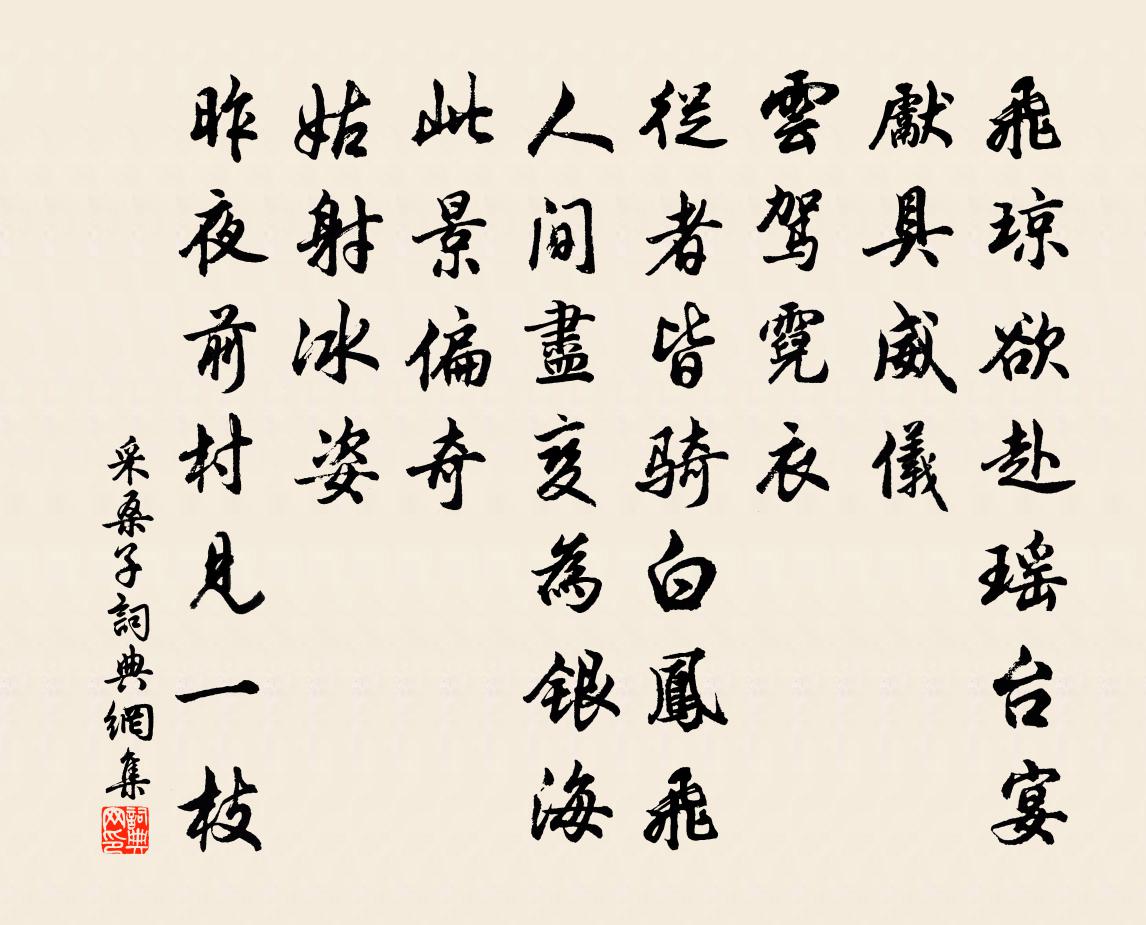 飛琼欲赴瑶台宴
獻具威儀
雲駕霓衣
從者皆騎白鳳飛
人间盡變為銀海
此景偏奇
姑射冰姿
昨夜前村見一枝
采桑子詞典網集
詞典网印